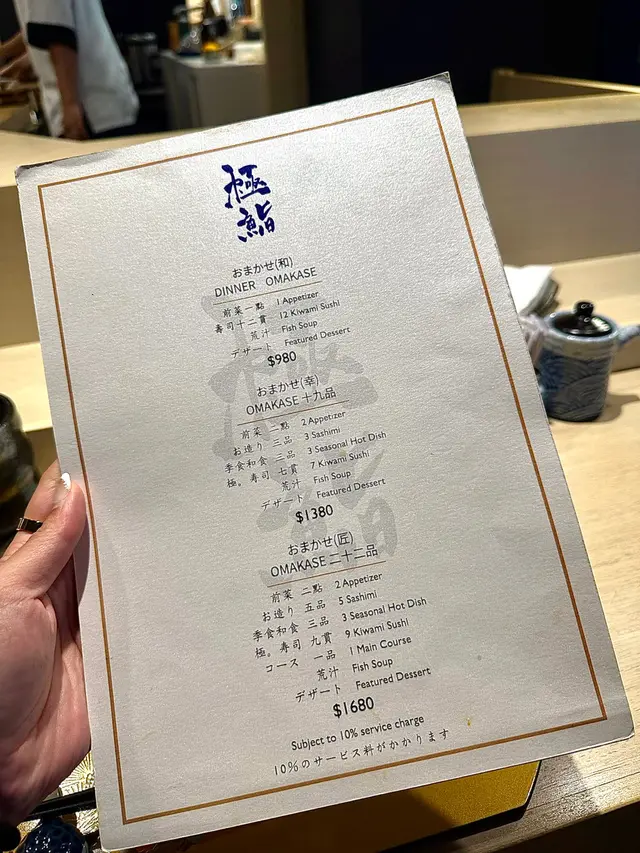 極
鮨
おまかせ(和)
DINNER OMAKASE
前菜 一點 1 Appetizer
寿司 十二貫 12 Kiwami Sushi
荒汁 Fish Soup
デザート Featured Dessert
$980
おまかせ(幸)
OMAKASE 十九品
前菜 二點 2 Appetizer
お造り 三品 3 Sashimi
季食和食 三品 3 Seasonal Hot Dish
極。寿司 七貫 7 Kiwami Sushi
荒汁 Fish Soup
デザート Featured Dessert
$1380
おまかせ(匠)
OMAKASE 二十二品
前菜 二點 2 Appetizer
お造り 五品 5 Sashimi
季食和食 三品 3 Seasonal Hot Dish
極。寿司 九貫 9 Kiwami Sushi
コース 一品 1 Main Course
荒汁 Fish Soup
デザート Featured Dessert
$1680
Subject to 10% service charge
10%のサービス料がかかります